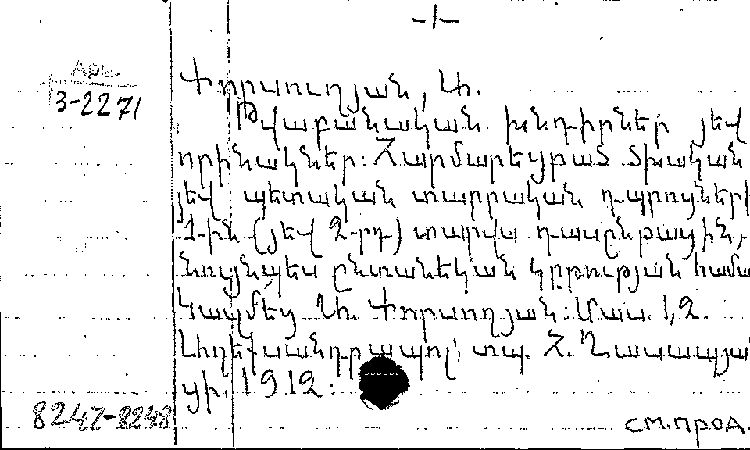 -1-
Арм.
3-2271
Թվաբանական խնդիրներ յեվ
որինակներ: Հարմարեցրած ծխական
յեվ պետական տարրական դպրոցների
1-ին (յեվ 2-րդ) տարվա դասընթացին,
նույնպես ընտանեկան կրթության համա
Կազմեց Մաս. 1,2.
տպ. Հ.
1912:
8247-8248
см. прод.